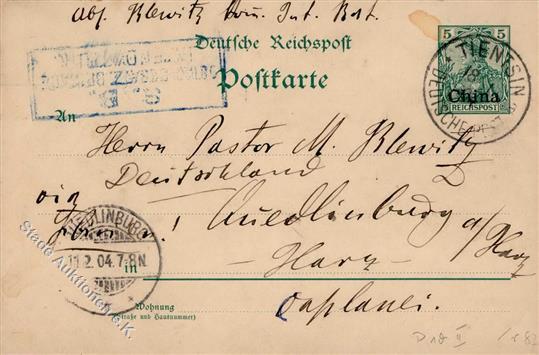 Abs. Blewitz
Deutsche Reichspost
Postkarte
5 5
China
REICHSPOST
TIENTSIN
DEUTSCHE POST
An
Herrn Pastor M. Blewitz
Deutschland
via
Quedlinburg a/Harz
Harz
in
Kaplanei.
QUEDLINBURG
11.2.04.7-8N.
Wohnung
(Straße und Hausnummer)
Stade Auktionen e.K.